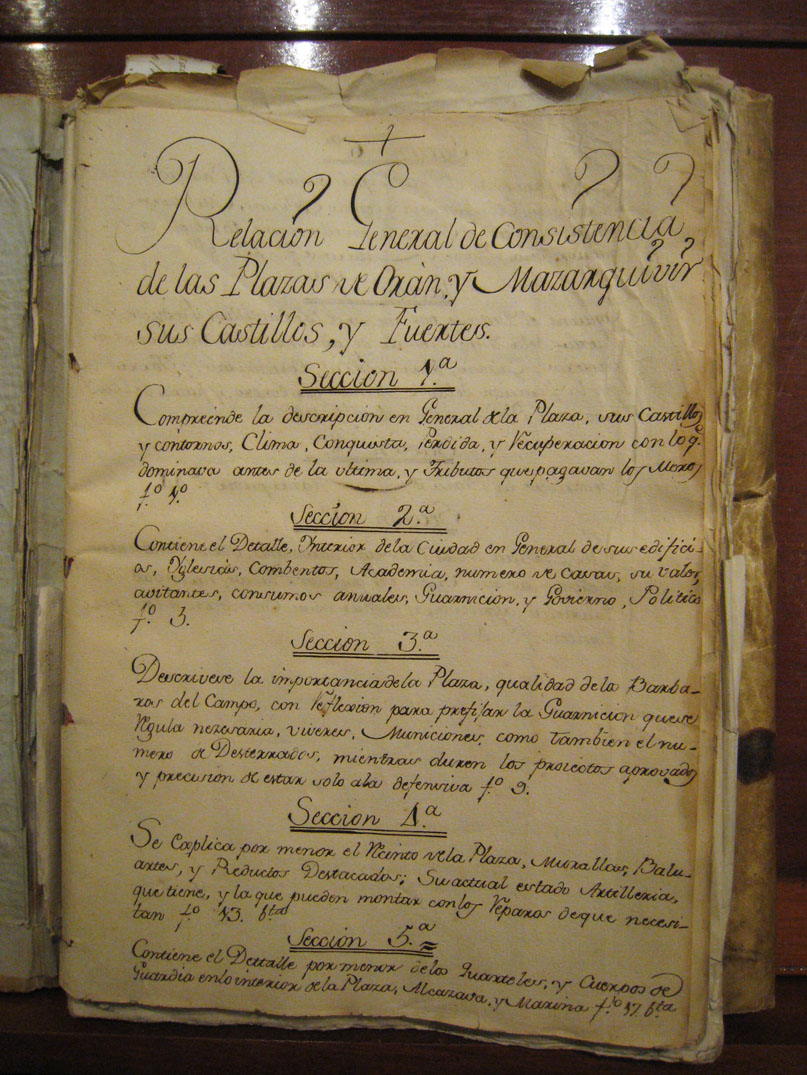 Relación General de Consistencia
de las Plazas de Orán, y Mazarquivir
sus Castillos, y Fuertes.
Seccion 1.ª
Compreende la descripcion en General de la Plaza, sus Castillos
y contornos, Clima, Conquista, Perdida, y Recuperacion con lo q.
dominava antes de la ultima, y Tributos que pagavan los Moros
f.º 1.º
Seccion 2.ª
Contiene el Detalle, Ynterior de la Ciudad en General de sus edifici-
os, Yglesias, Combentos, Academia, numero de Casas, su valor,
avitantes, consumos anuales, Guarnicion, y Govierno, Politico
f.º 3.
Seccion 3.ª
Descrivese la importancia de la Plaza, qualidad de la Barba-
ros del Campo, con Reflexion para prefijar la Guarnicion que se
Regula nezesaria, viveres, Municiones, como tambien el nu-
mero de Desterrados, mientras duren los proiectos aprovados
y precision de estar solo a la defensiva f.º 9.
Seccion 4.ª
Se Explica por menor el Recinto de la Plaza, Murallas, Balu-
artes, y Reductos Destacados; Su actual estado Artilleria,
que tiene, y la que pueden montar con los Reparos de que necesi-
tan f.º 13. bta
Sección 5.ª
Contiene el Dettalle por menor de los Quarteles, y Cuerpos de
Guardia en lo interior de la Plaza, Alcazava, y Marina f.º 17 bta